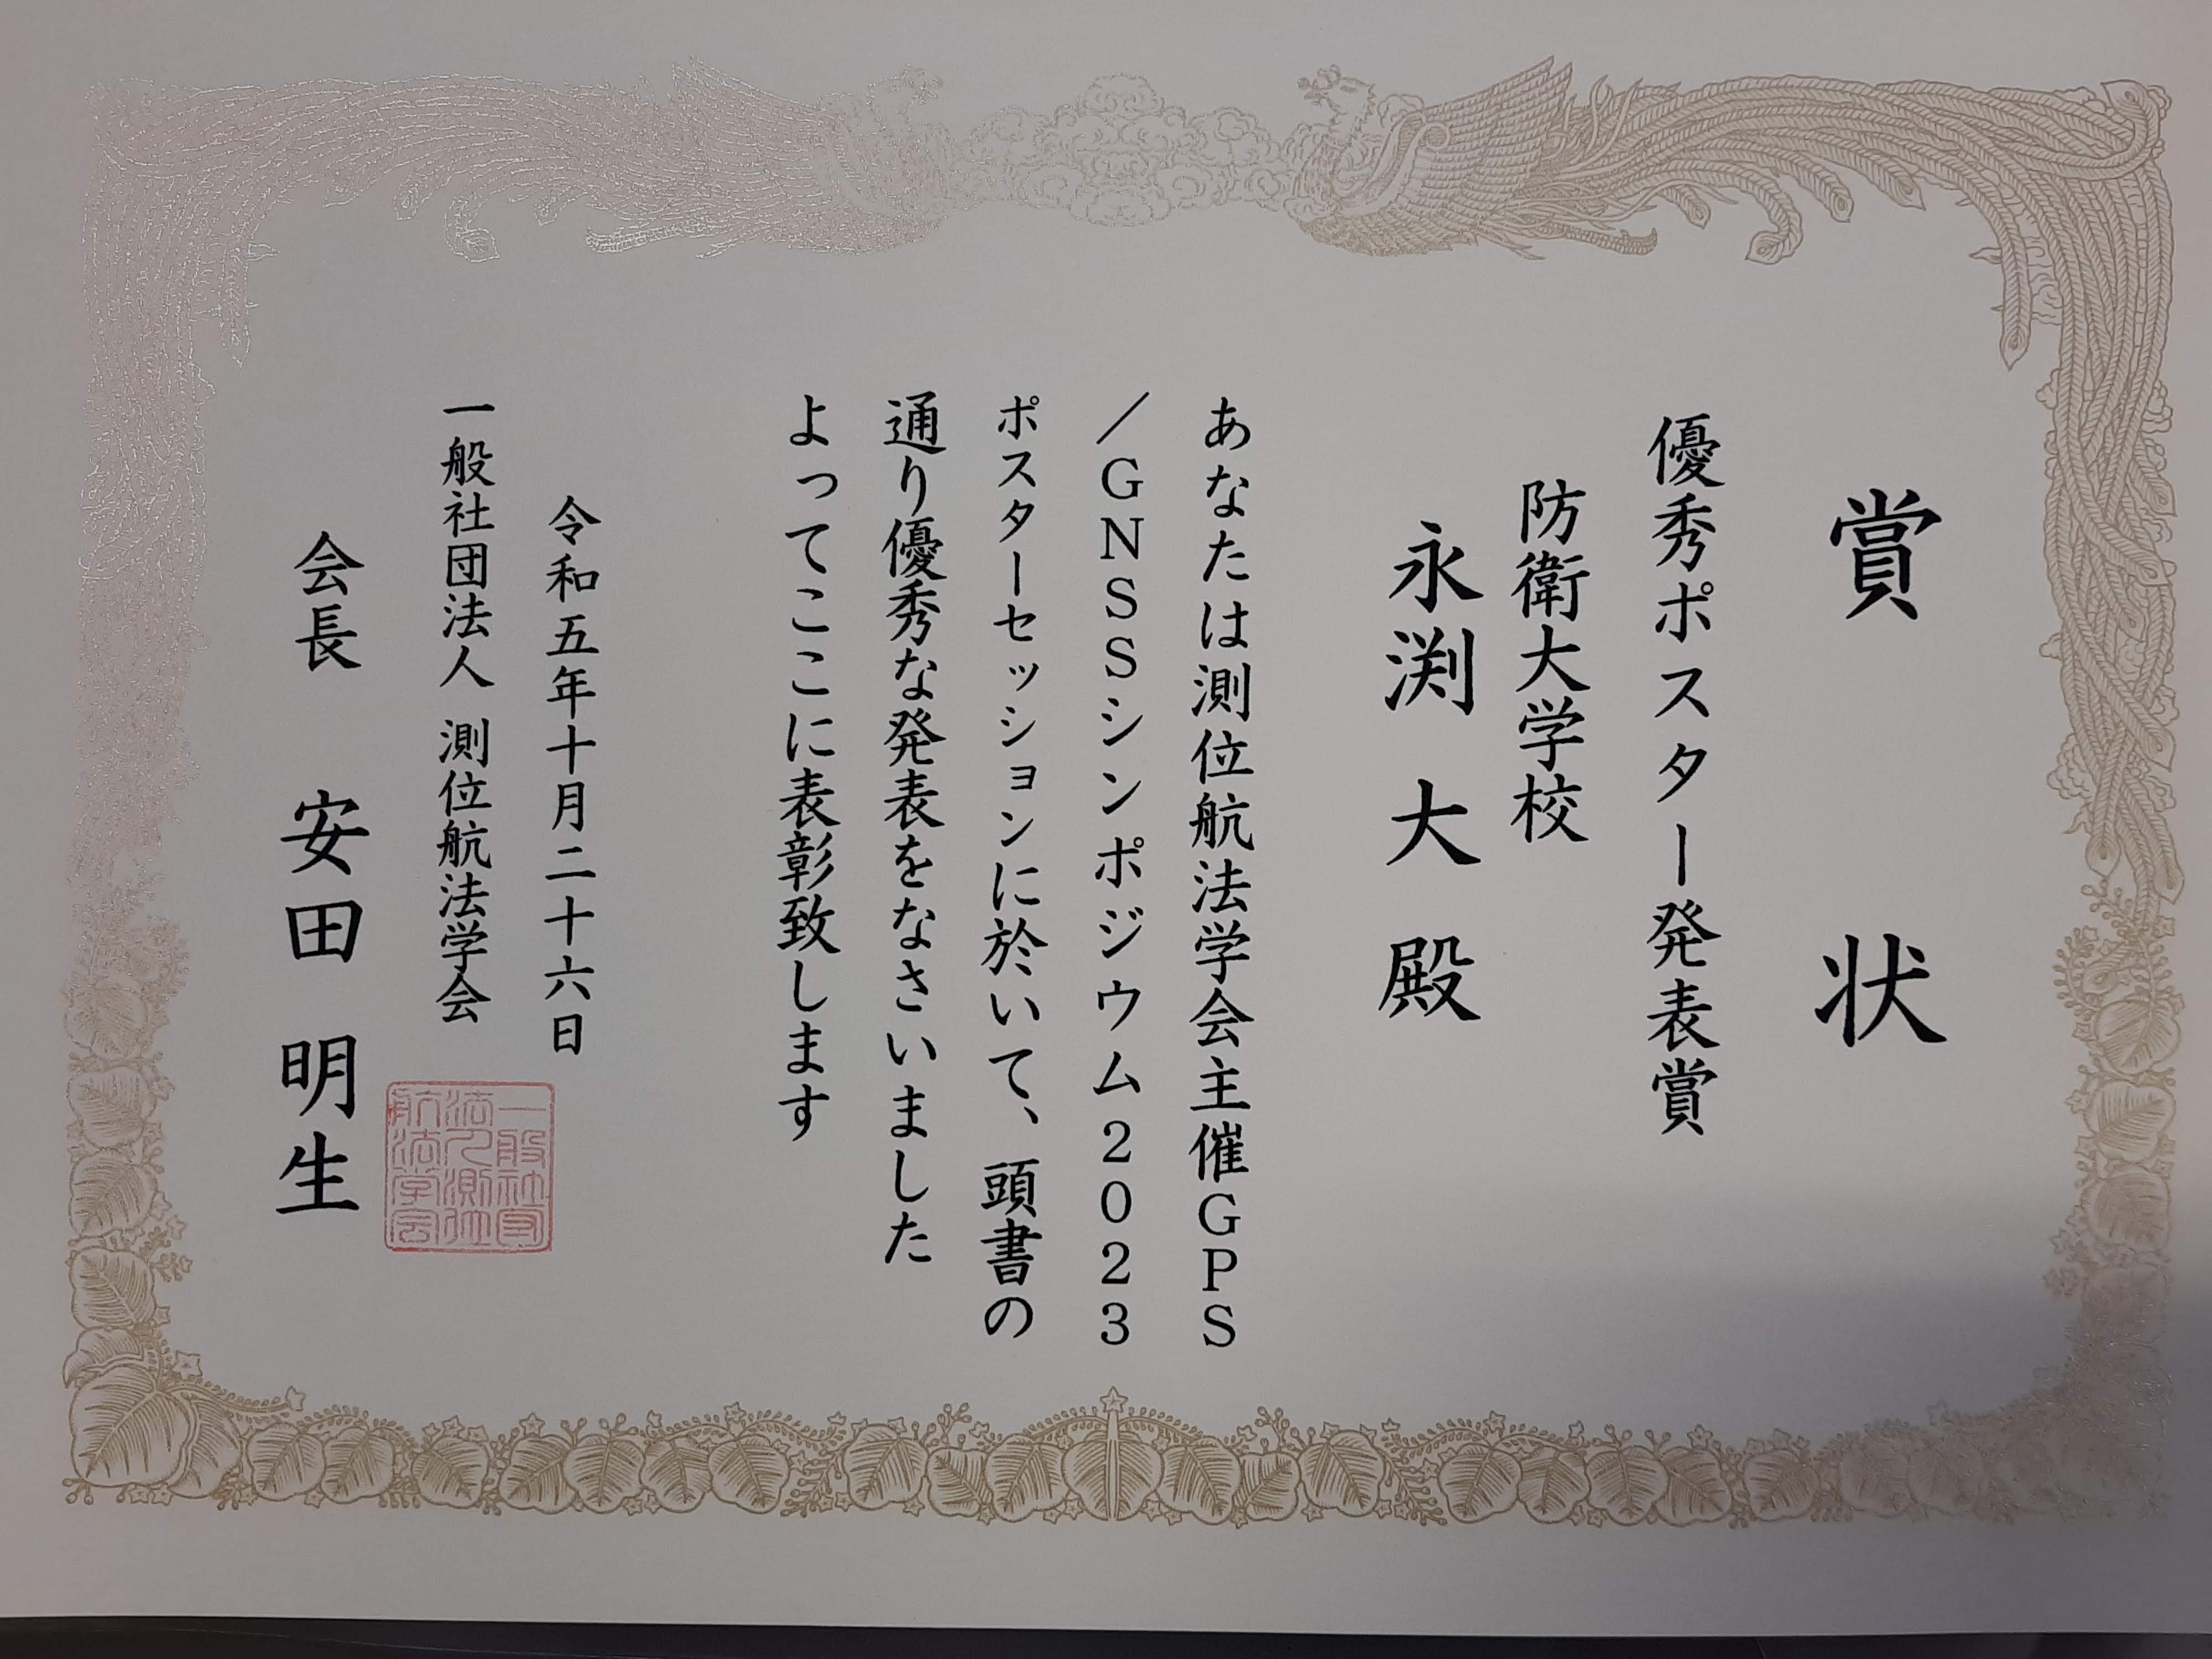 賞状
優秀ポスター発表賞
防衛大学校
永渕 大 殿
あなたは測位航法学会主催GPS
/GNSSシンポジウム2023
ポスターセッションに於いて、頭書の
通り優秀な発表をなさいました
よってここに表彰致します
令和五年十月二十六日
一般社団法人 測位航法学会
会長 安田 明生
一般社団
法人測位
航法学会